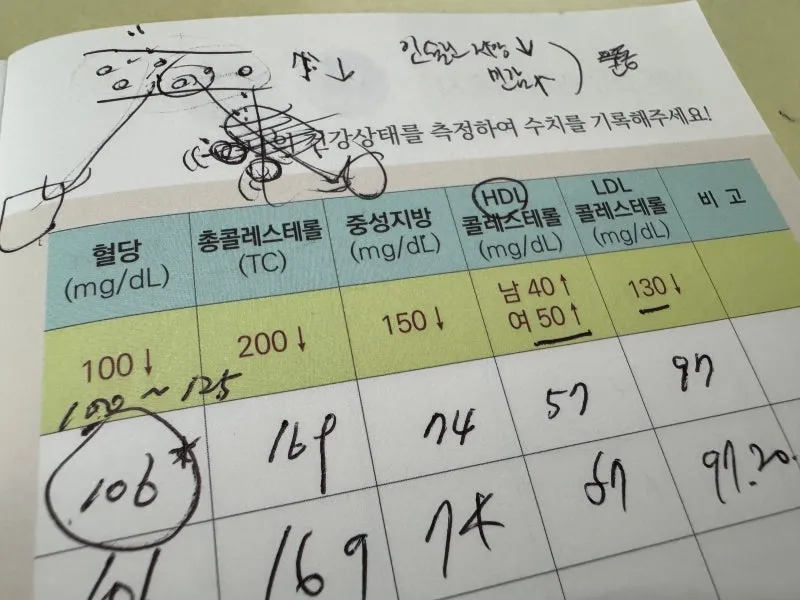 인슐린 저항 ↓
민감 ↑
건강상태를 측정하여 수치를 기록해주세요!
혈당 (mg/dL) 총콜레스테롤 (TC) 중성지방 (mg/dL) HDL 콜레스테롤 (mg/dL) LDL 콜레스테롤 (mg/dL) 비 고
100↓ 200↓ 150↓ 남 40↑ 여 50↑ 130↓
100 ~ 125
106* 169 74 57 97
101 169 74 67 97.20